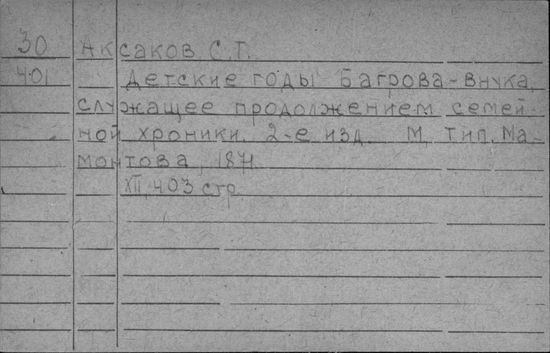 30 Аксаков С.Т.
401 Детские годы Багрова-внука,
служащее продолжением семей-
ной хроники. 2-е изд. М. тип. Ма-
монтова, 1871.
XII, 403 стр.